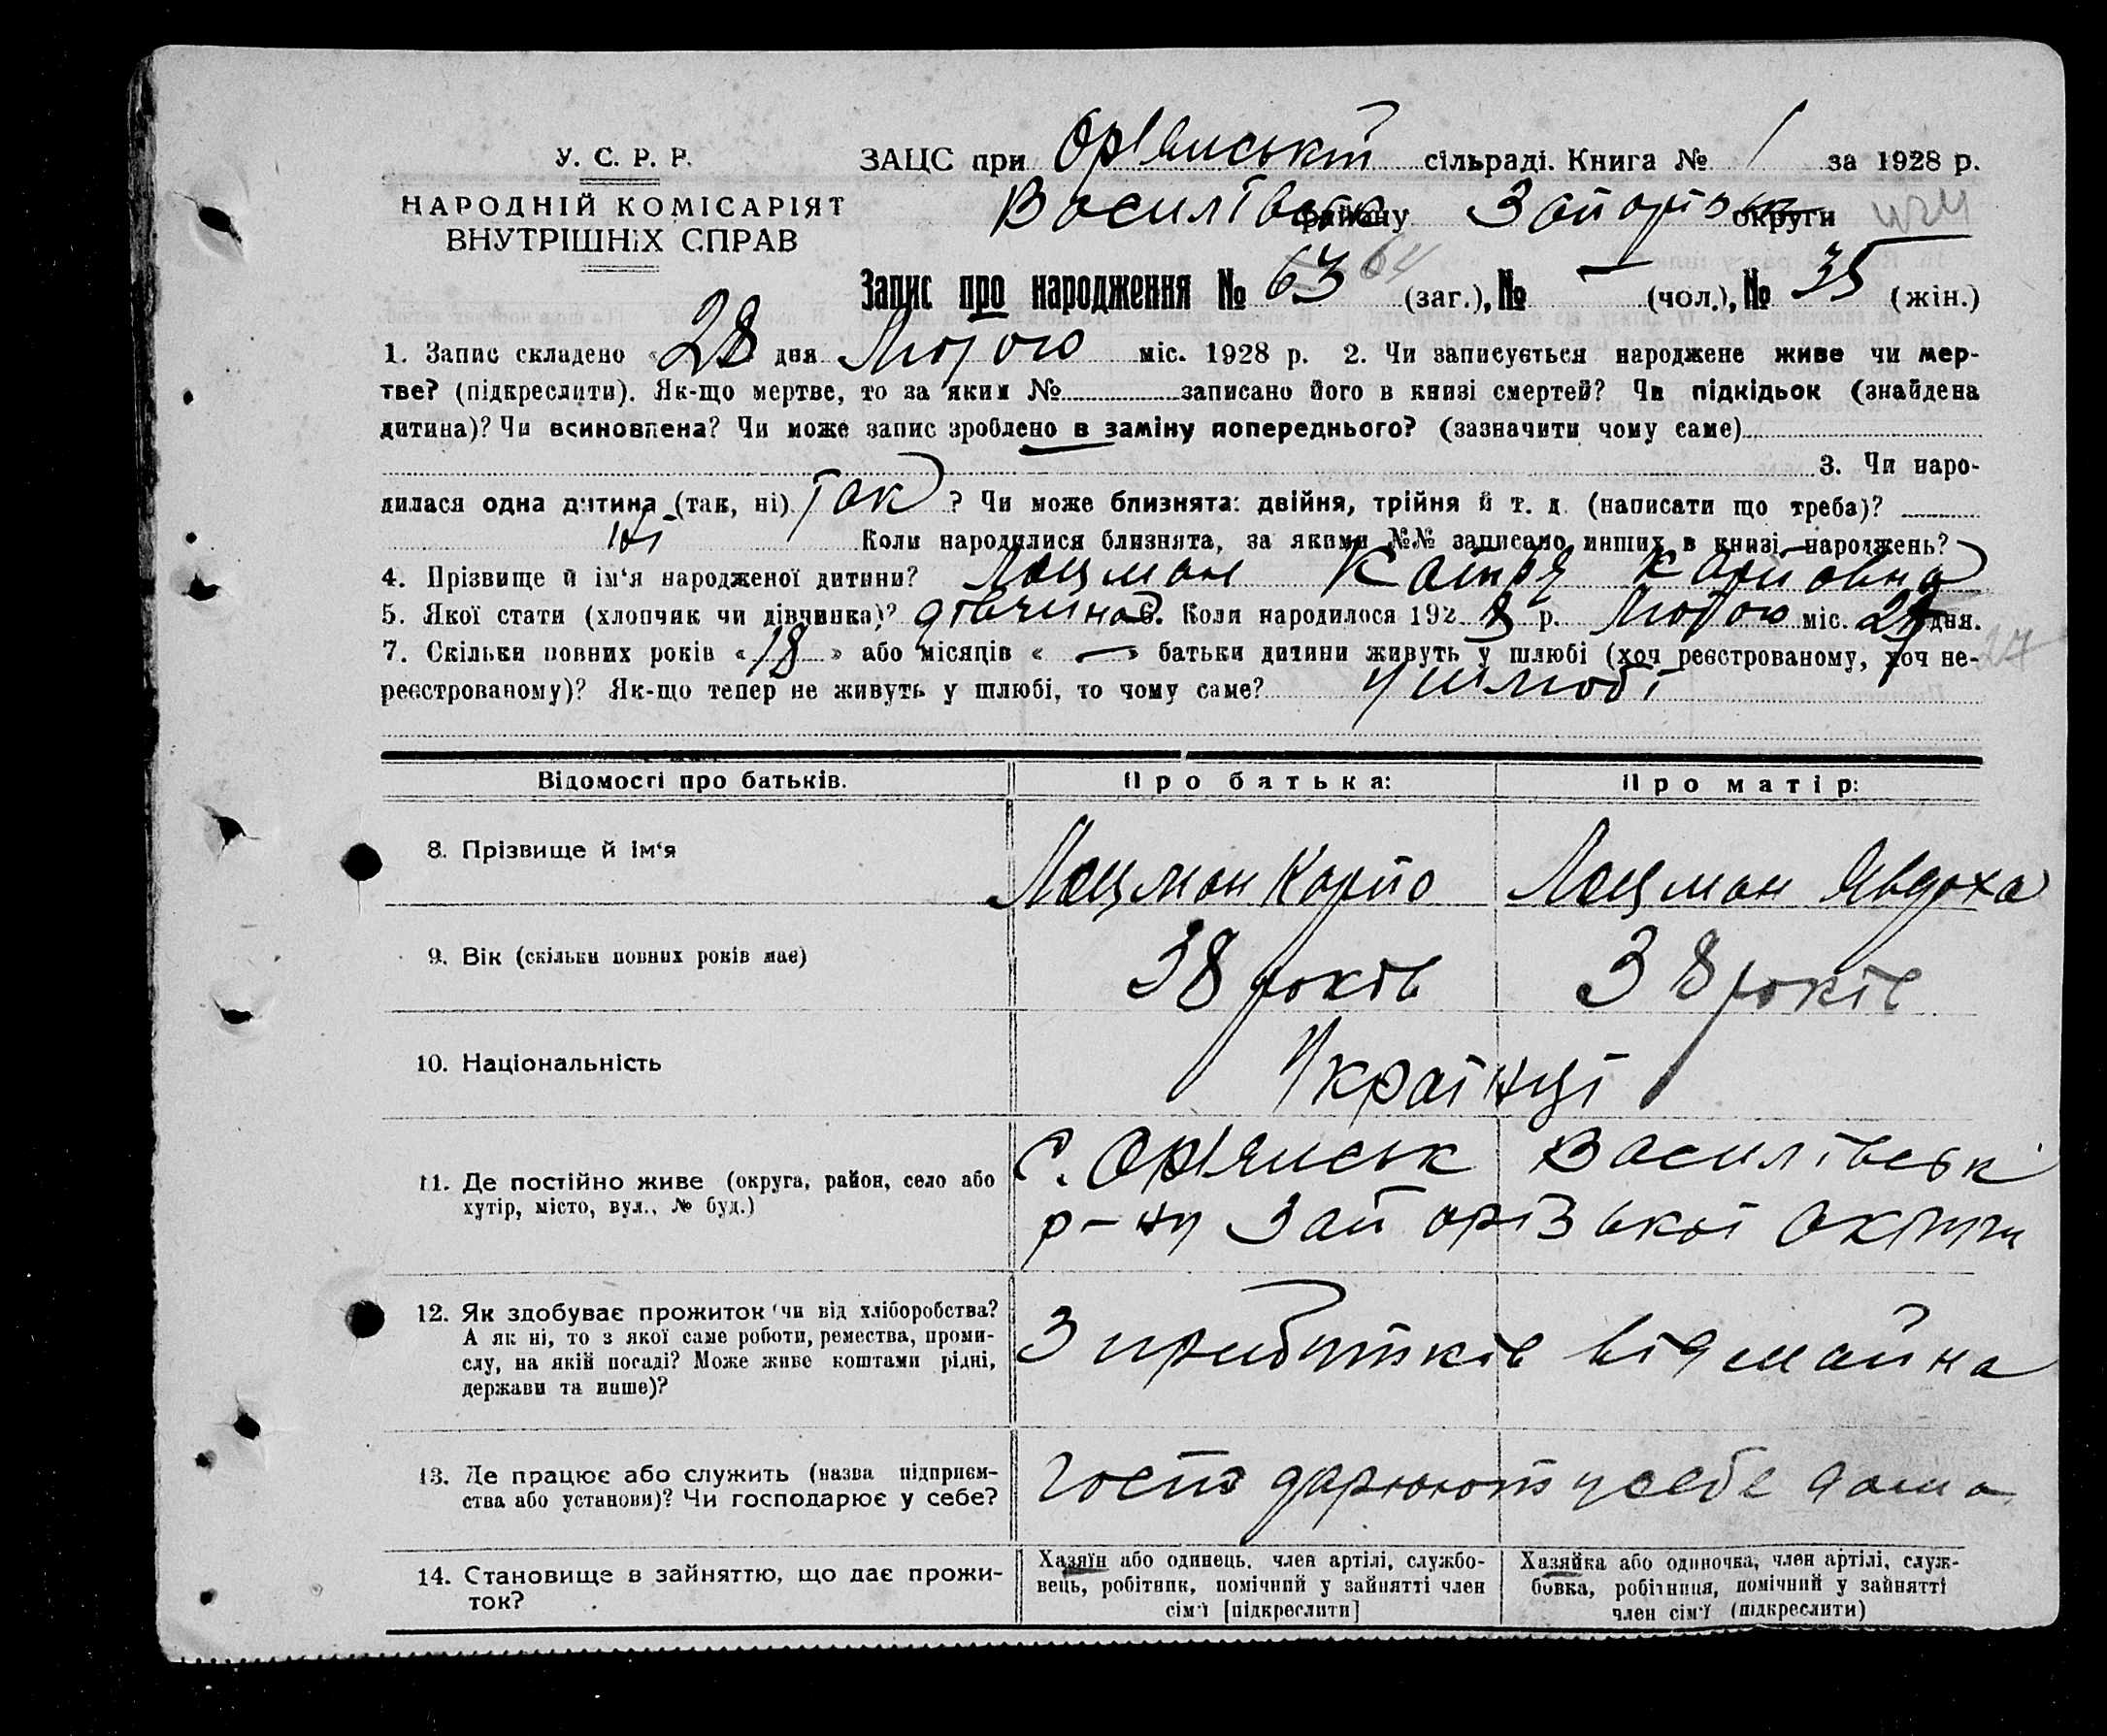 У. С. Р. Р.
НАРОДНІЙ КОМІСАРІЯТ
ВНУТРІШНіХ СПРАВ
ЗАЦС при Ор'янській сільраді. Книга № 1 за 1928 р.
Василівськ району Запорізьк округи
Запис про народження № 63 64 (заг.), № — (чол.), № 35 (жін.)
1. Запис складено «28 дня Лютого міс. 1928 р. 2. Чи записується народжене живе чи мер-
тве? (підкреслити). Як-що мертве, то за яким № записано його в книзі смертей? Чи підкідьок (знайдена
дитина)? Чи всиновлена? Чи може запис зроблено в заміну попереднього? (зазначити чому саме)
3. Чи наро-
дилася одна дитина (так, ні) Так ? Чи може близнята: двійня, трійня й т. д. (написати що треба)?
Ні Коли народилися близнята, за якими №№ записано инших в книзі народжень?
4. Прізвище й ім'я народженої дитини? Лоцман Катря Карповна
5. Якої стати (хлопчик чи дівчинка)? дівчинка 6. Коли народилося 1928 р. Лютого міс. 27 дня.
27
7. Скільки повних років «18» або місяців « — » батьки дитини живуть у шлюбі (хоч реєстрованому, хоч не-
реєстрованому)? Як-що тепер не живуть у шлюбі, то чому саме? У шлюбі
Відомості про батьків. Про батька: Про матір:
8. Прізвище й ім'я Лоцман Карпо Лоцман Явдоха
9. Вік (скільки повних років має) 38 років 38 років
10. Національність Українці
11. Де постійно живе (округа, район, село або
хутір, місто, вул., № буд.)
с. Ор'янськ Василівськ
р-ну Запорізької Округи
12. Як здобуває прожиток чи від хліборобства?
А як ні, то з якої саме роботи, ремества, проми-
слу, на якій посаді? Може живе коштами рідні,
держави та инше)?
З прибутків від майна
13. Де працює або служить (назва підприєм-
ства або установи)? Чи господарює у себе?
Господарюють у себе дома
14. Становище в зайняттю, що дає прожи-
ток?
Хазяїн або одинець, член артілі, службо-
вець, робітник, помічний у зайнятті член
сім'ї [підкреслити]
Хазяйка або одиночка, член артілі, служ-
бовка, робітниця, помічний у зайнятті
член сім'ї (підкреслити)